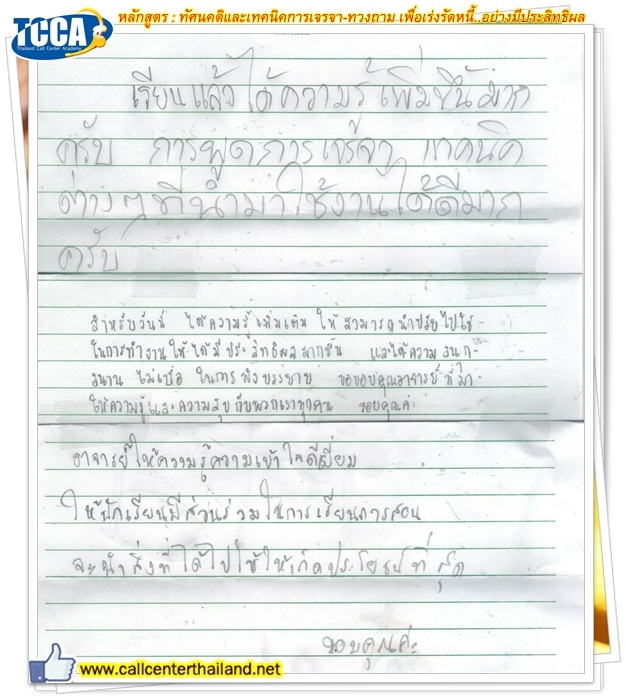 TCCA
Thailand Call Center Academy
หลักสูตร : ทัศนคติและเทคนิคการเจรจา-ทวงถาม เพื่อเร่งรัดหนี้..อย่างมีประสิทธิผล
เรียนแล้วได้ความรู้เพิ่มขึ้นมาก
ครับ การพูดการเจรจา เทคนิค
ต่างๆที่นำมาใช้งานได้ดีมาก
ครับ
สำหรับวันนี้ ได้ความรู้เพิ่มเติม ให้สามารถนำปรับไปใช้-
ในการทำงานให้ได้มีประสิทธิผลมากขึ้น และได้ความสนุก-
สนาน ไม่เบื่อ ในการฟังบรรยาย ขอขอบคุณอาจารย์ที่มา-
ให้ความรู้และความสุขกับพวกเราทุกคน ขอบคุณค่ะ
อาจารย์ให้ความรู้ความเข้าใจดีเยี่ยม
ให้นักเรียนมีส่วนร่วมในการเรียนการสอน
จะนำสิ่งที่ได้ไปใช้ให้เกิดประโยชน์ที่สุด
ขอบคุณค่ะ
www.callcenterthailand.net